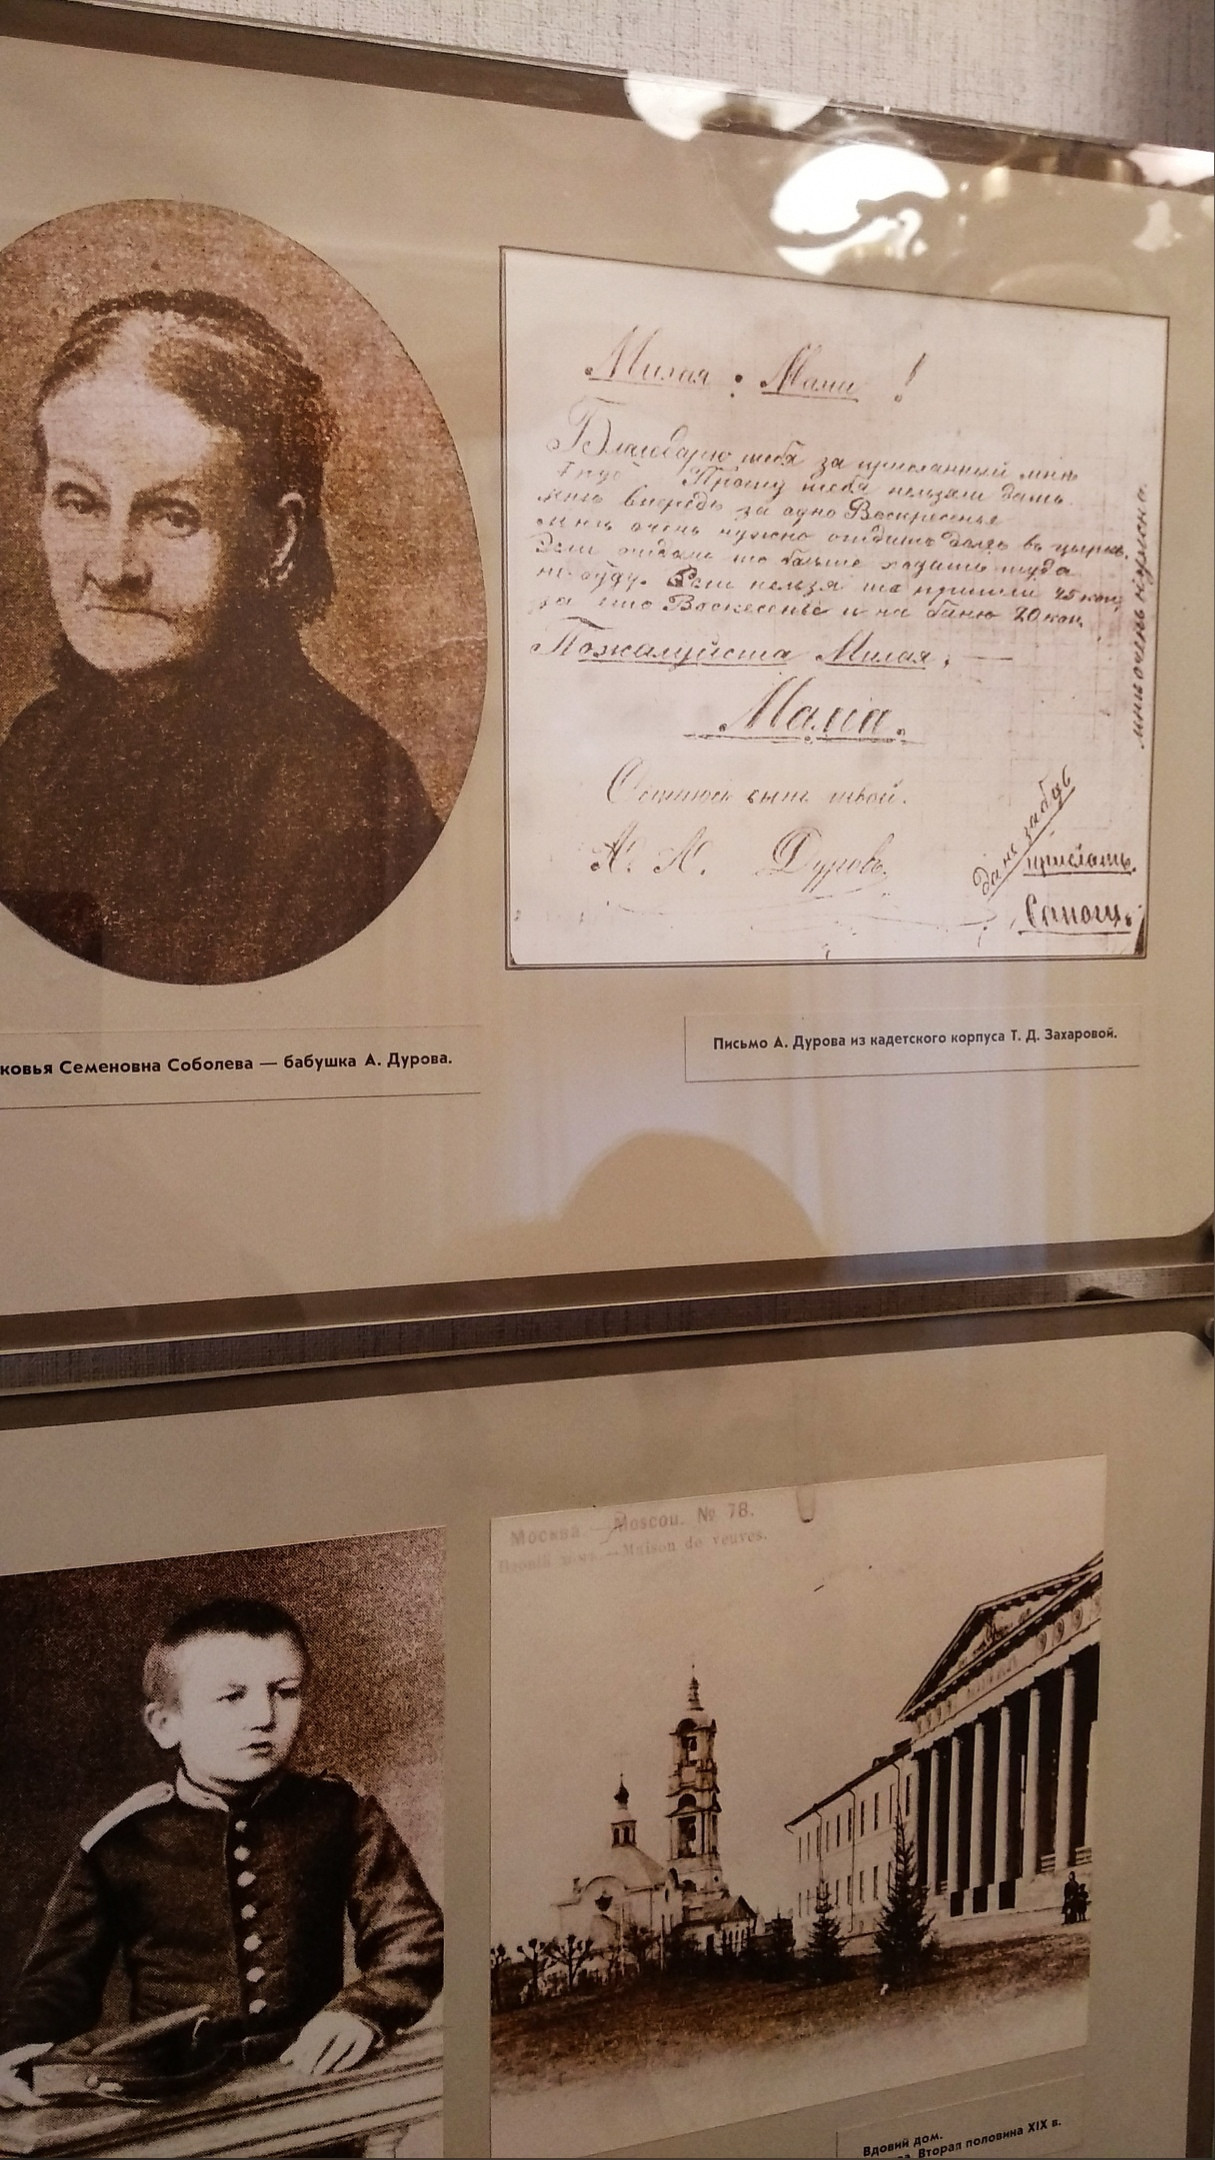 Милая Мама !
Благодарю тебя за присланный мнѣ
Прошу тебя нельзяли дать
мнѣ впередъ за одно Воскресенье
мнѣ очень нужно отдать долгъ въ циркъ.
Если отдамъ то больше ходить туда
не буду. Если нельзя то пришли 25 коп.
за это Воскресенье и на баню 20 коп.
Пожалуйста Милая,
Мама.
мнѣ очень нужно.
Остаюсь сынъ твой.
Дуровъ.
Да не забудь
прислать
Сапоги.
ковья Семеновна Соболева — бабушка А. Дурова.
Письмо А. Дурова из кадетского корпуса Т. Д. Захаровой.
Москва — Moscou. № 78.
— Maison de veuves.
Вдовий дом.
Вторая половина XIX в.